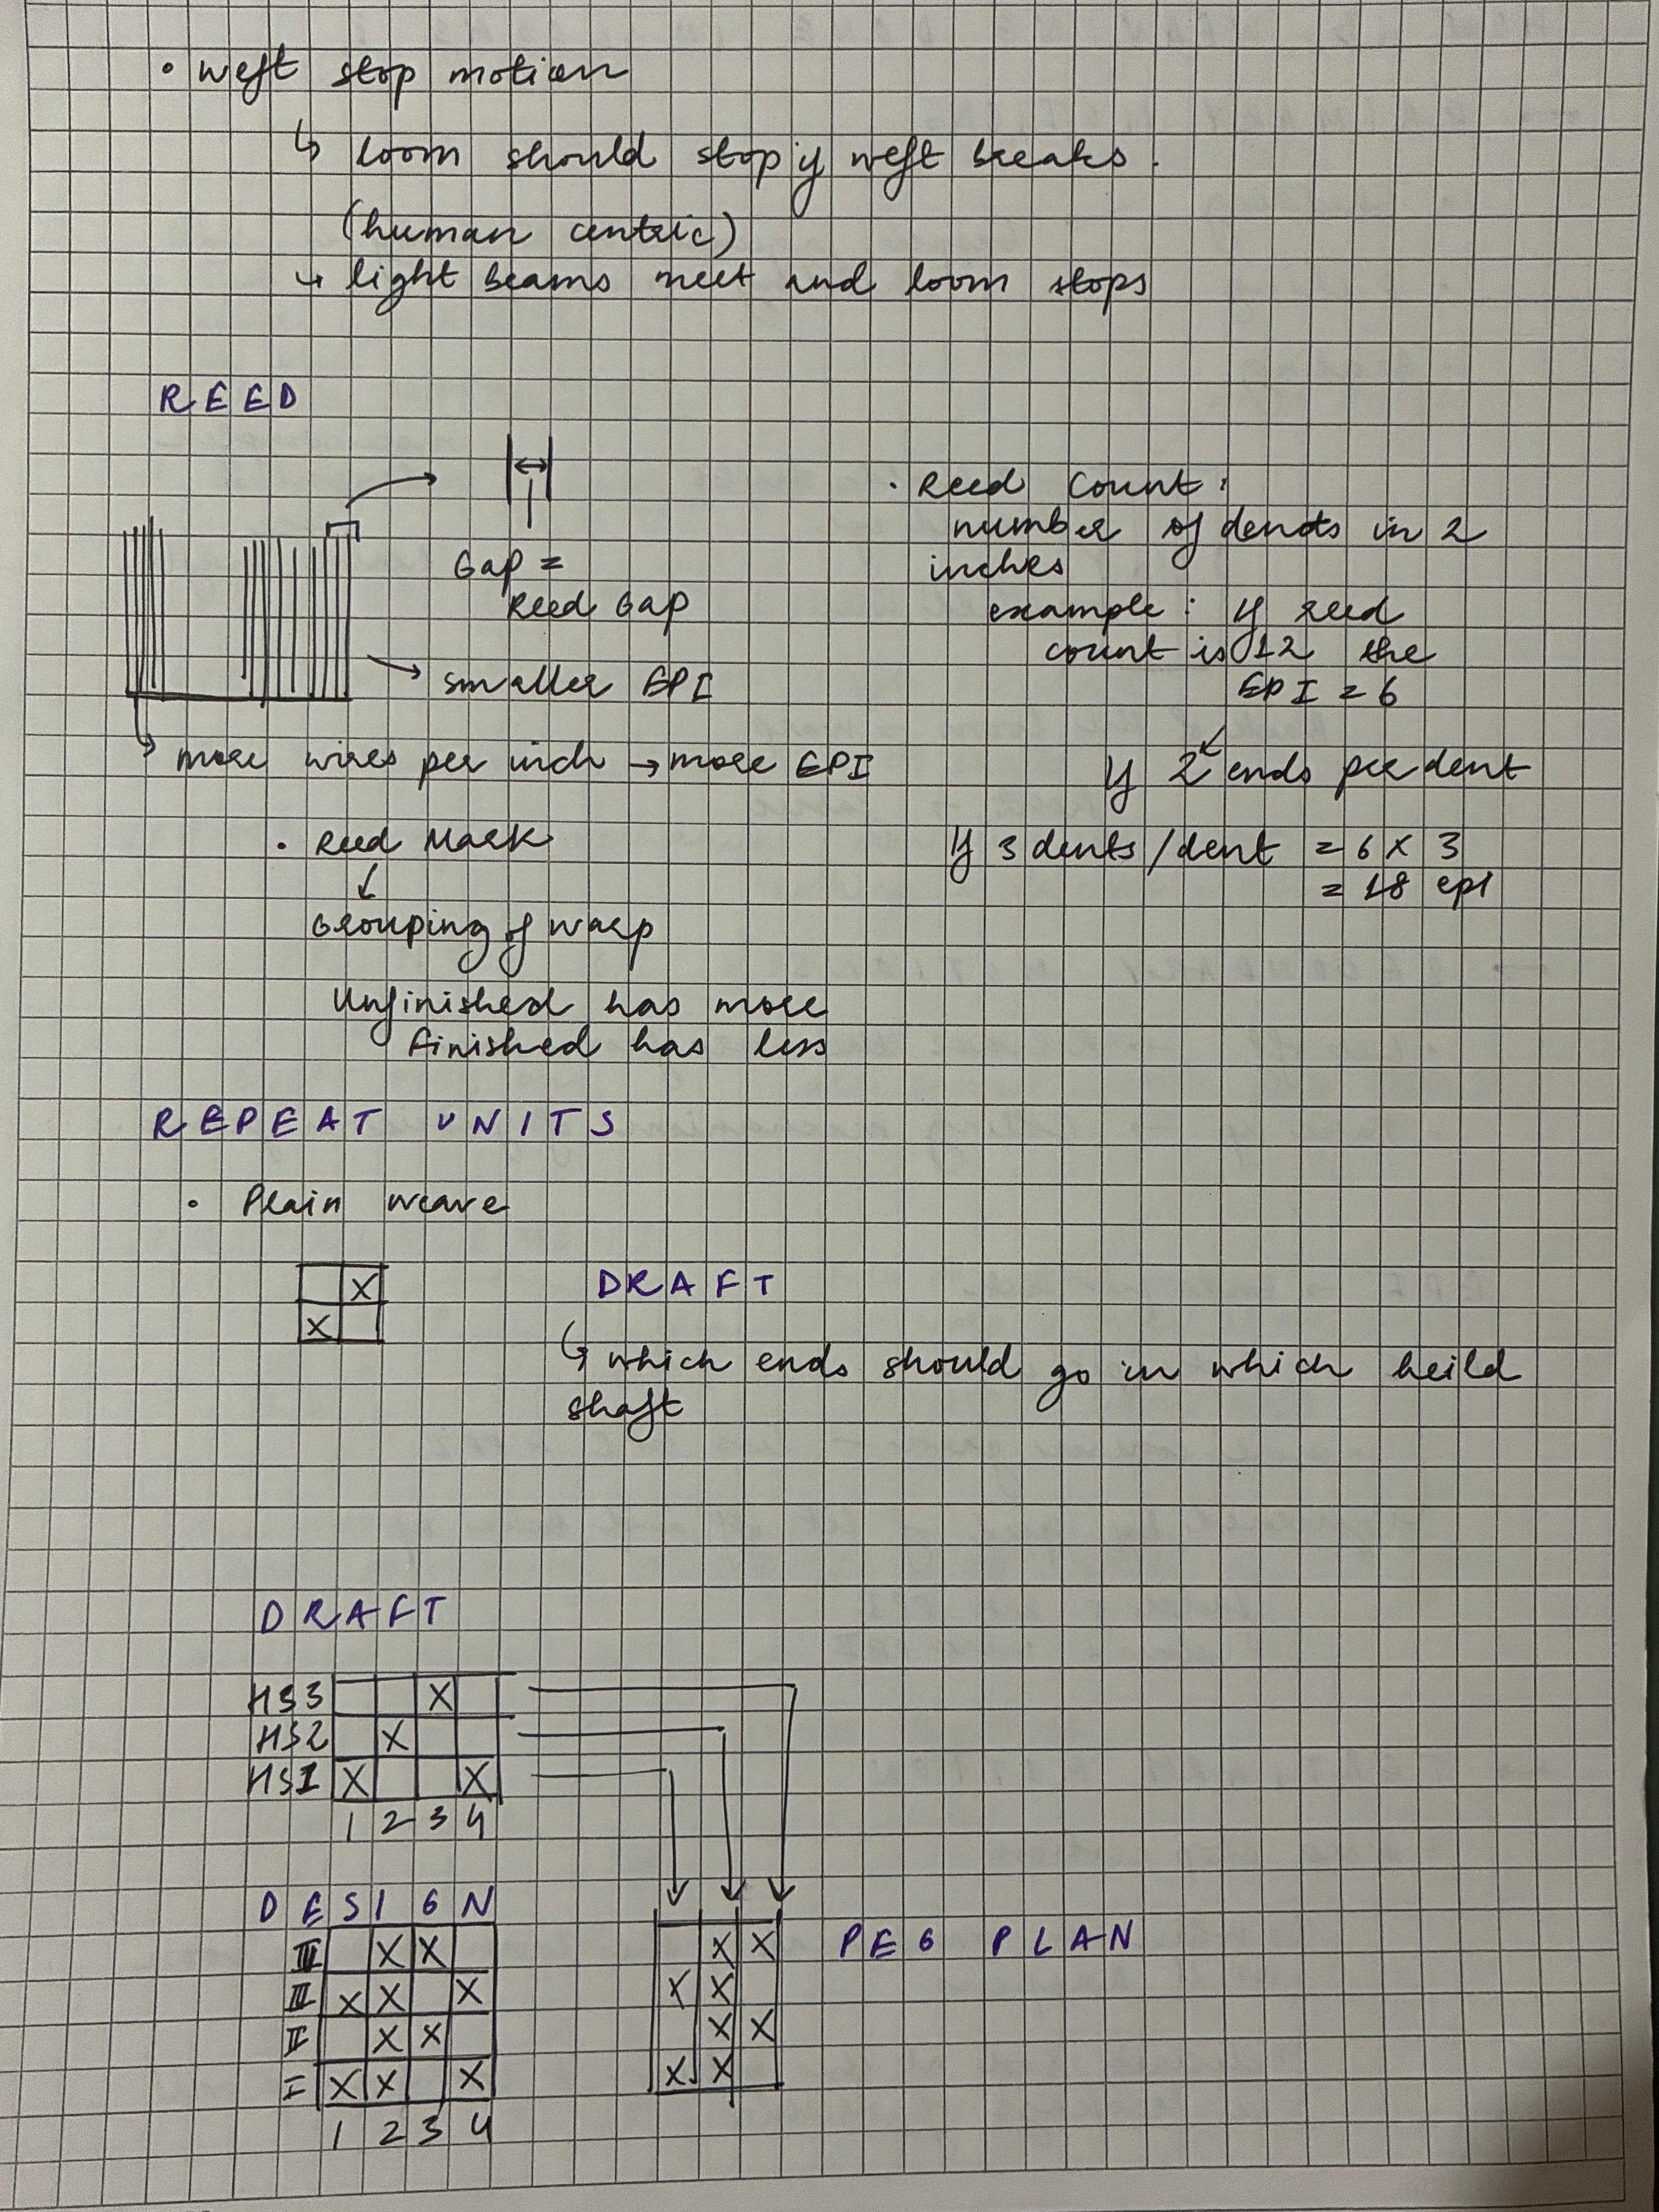 • weft stop motion
↳ loom should stop if weft breaks.
(human centric)
↳ light beams meet and loom stops
REED
Gap =
Reed Gap
smaller EPI
more wires per inch → more EPI
• Reed Mark
↓
Grouping of warp
Unfinished has more
finished has less
• Reed Count:
number of dents in 2
inches
example: If reed
count is 12 the
EPI = 6
If 2 ends per dent
If 3 dents/dent = 6 x 3
= 18 epi
REPEAT UNITS
• Plain weave
X
X
DRAFT
↳ which ends should go in which heild
shaft
DRAFT
HS3 X
HS2 X
HS1 X X
1 2 3 4
DESIGN
III X X
III X X X
II X X
I X X X
1 2 3 4
PEG PLAN
X X
X X
X X
X X